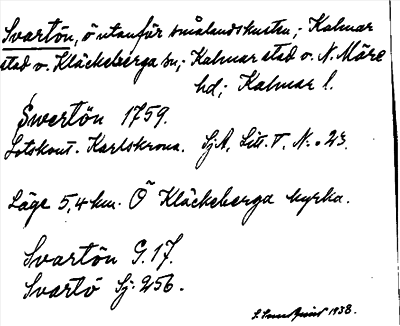 Svartön, ö utanför smålandskusten; Kalmar
stad o. Kläckeberga sn; Kalmar stad o. N. Möre
hd; Kalmar l.
Swertön 1759.
Lotskont. Karlskrona. SjA, Litt. T, N:o 23.
Läge 5,4 km. Ö Kläckeberga kyrka.
Svartön G. 17.
Svartö Sj: 256.
1938.